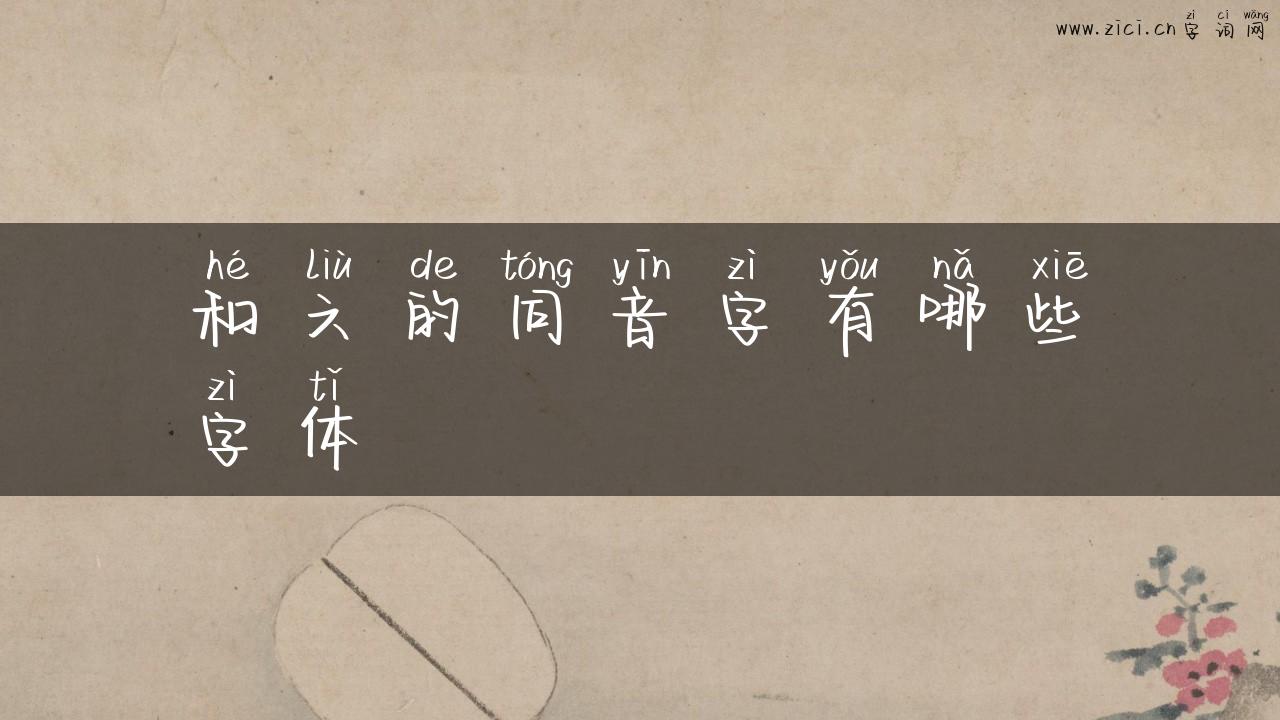 zì cí wǎng
www.zici.cn 字词网
hé liù de tóng yīn zì yǒu nǎ xiē
和六的同音字有哪些
zì tǐ
字体